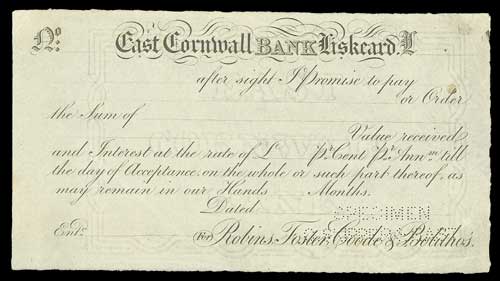 No: East Cornwall BANK Liskeard. £
after sight I Promise to pay
or Order
the Sum of
Value received
and Interest at the rate of £ Pr. Cent Pr. Annm. till
the day of Acceptance, on the whole or such part thereof, as
may remain in our Hands Months.
Dated
SPECIMEN
Entd. (For) Robins, Foster, Coode & Bolitho's.